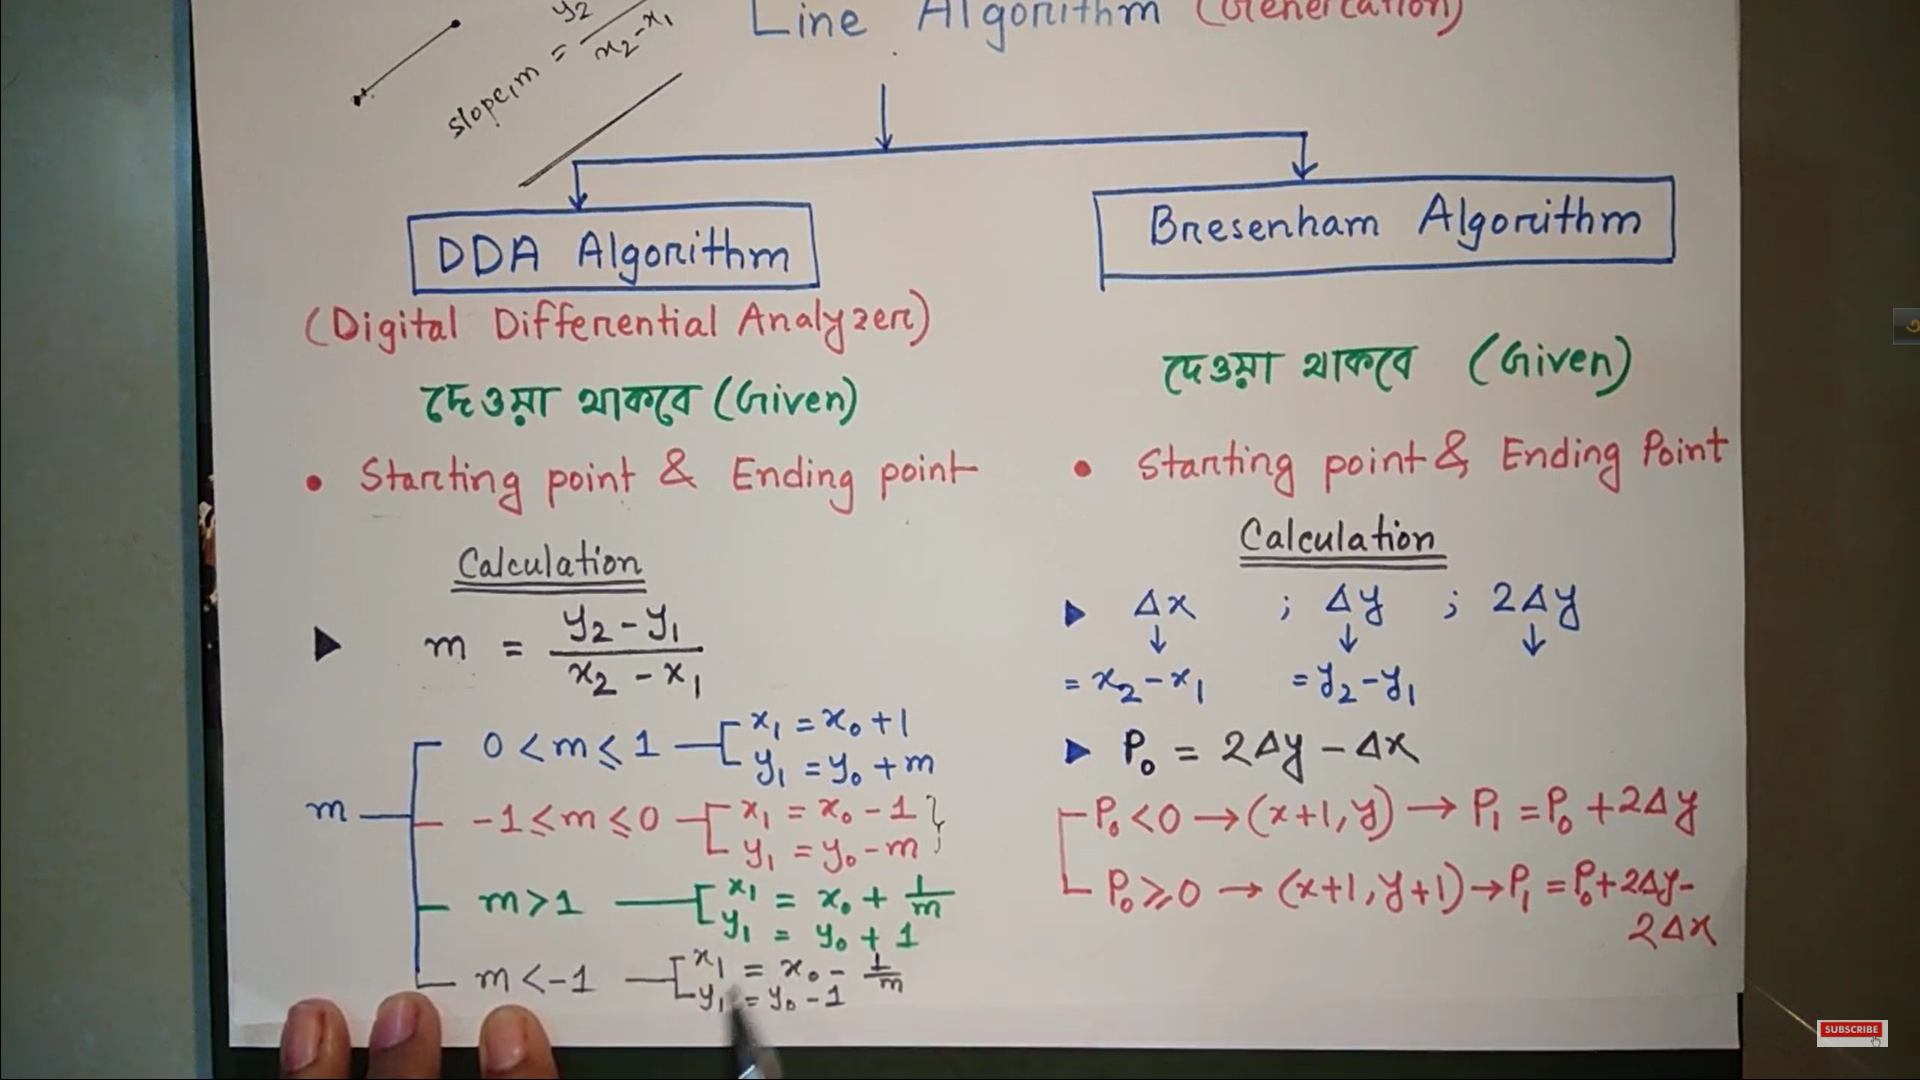 Line Algorithm (Generation)
slope, m = y2 / x2-x1
DDA Algorithm
(Digital Differential Analyzer)
দেওয়া থাকবে (Given)
• Starting point & Ending point
Calculation
▶ m = y2 - y1 / x2 - x1
m
0 < m ≤ 1 x1 = x0 + 1
y1 = y0 + m
-1 ≤ m ≤ 0 x1 = x0 - 1
y1 = y0 - m
m > 1 x1 = x0 + 1/m
y1 = y0 + 1
m < -1 x1 = x0 - 1/m
y1 = y0 - 1
Bresenham Algorithm
দেওয়া থাকবে (Given)
• Starting point & Ending Point
Calculation
▶ Δx ; Δy ; 2Δy
= x2 - x1 = y2 - y1
▶ P0 = 2Δy - Δx
P0 < 0 → (x+1, y) → P1 = P0 + 2Δy
P0 ≥ 0 → (x+1, y+1) → P1 = P0 + 2Δy -
2Δx
SUBSCRIBE